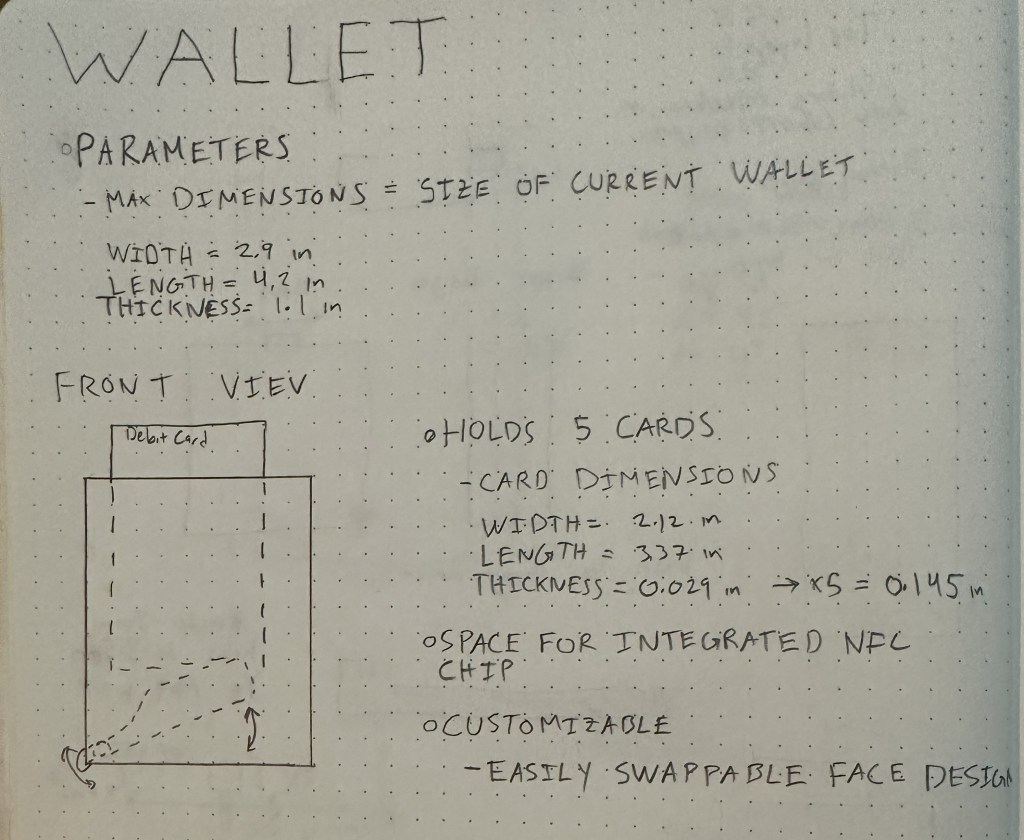 WALLET
◦PARAMETERS
- MAX DIMENSIONS = SIZE OF CURRENT WALLET
WIDTH = 2.9 in
LENGTH = 4.2 in
THICKNESS= 1.1 in
FRONT VIEW
Debit Card
◦HOLDS 5 CARDS
- CARD DIMENSIONS
WIDTH = 2.12 in
LENGTH = 3.37 in
THICKNESS = 0.029 in → x5 = 0.145 in
◦SPACE FOR INTEGRATED NFC
CHIP
◦CUSTOMIZABLE
- EASILY SWAPPABLE FACE DESIGN